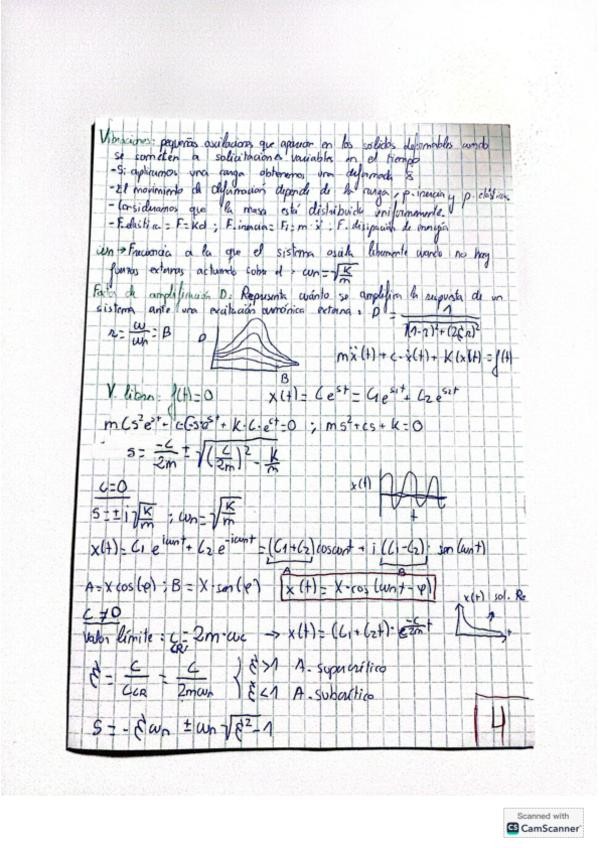 Vibraciones: pequeñas oscilaciones que aparecen en los sólidos deformables cuando
se someten a solicitaciones variables en el tiempo
- Si aplicamos una carga obtenemos una deformada δ
- El movimiento de deformación depende de la carga, p. inercia y p. elástica
- Consideramos que la masa está distribuida uniformemente.
- F. elástica = F = Kd ; F. inercia = Fi = m · ẍ ; F. disipación de energía
ωn → Frecuencia a la que el sistema oscila libremente cuando no hay
fuerzas externas actuando sobre él → ωn = √(K/m)
Factor de amplificación D: Representa cuánto se amplifica la respuesta de un
sistema ante una excitación armónica externa: D = 1/√((1-r²)²+(2ξr)²)
r = ω/ωn = B
D
B
mẍ(t) + c·ẋ(t) + K(x)(t) = f(t)
V. libres: f(t) = 0 x(t) = Ce^st = C1e^s1t + C2e^s2t
mCs²e^st + cCse^st + K·C·e^st = 0 ; ms² + cs + K = 0
s = -c/2m ± √((c/2m)² - K/m)
C=0
x(t)
t
s = ± i√(K/m) ; ωn = √(K/m)
x(t) = C1 e^iωnt + C2 e^-iωnt = (C1+C2) cosωnt + i (C1-C2) · sen(ωnt)
A B
A = X cos(φ) ; B = X · sen(φ) x(t) = X · cos(ωnt - φ)
C≠0
x(t) sol. Re
Valor límite: c = 2m·ωc → x(t) = (C1+C2t) · e^(-c/2m)t
CRi
t
ξ = C/CCR = C/2mωn { ξ>1 A. supercrítico
ξ<1 A. subcrítico
s = -ξωn ± ωn √(ξ²-1)
4
Scanned with
CS CamScanner